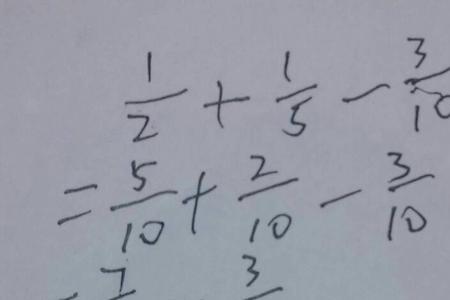 1/2 + 1/5 - 3/10
= 5/10 + 2/10 - 3/10
7 3